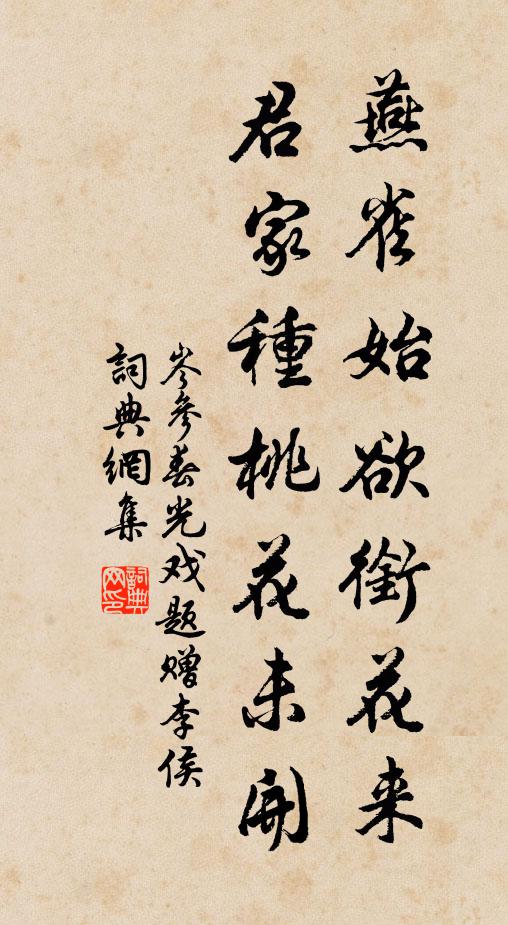 燕雀始欲銜花来
君家種桃花未開
岑參春光戏题赠李侯
詞典網集
詞典网印